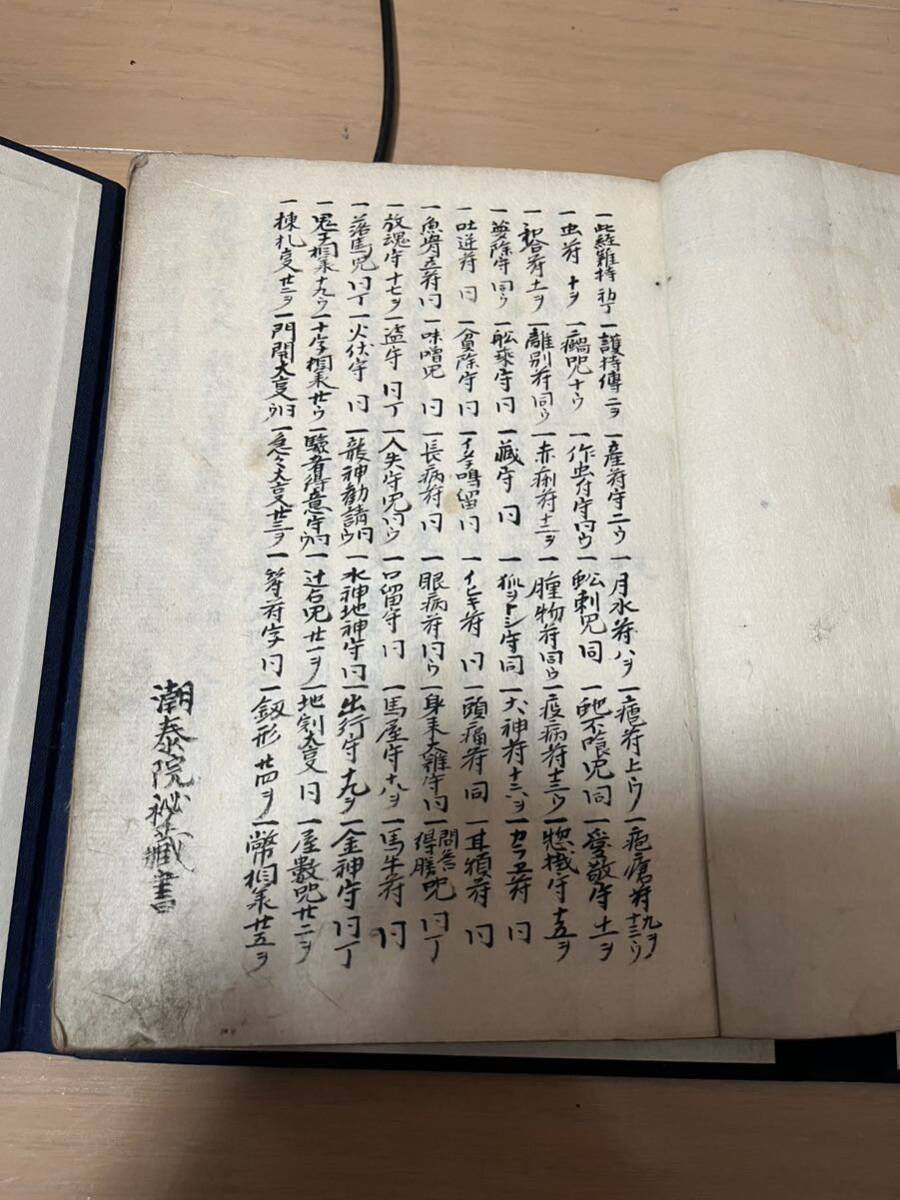 一此経難持 初丁 一護持傳 二ヲ 一産符守 二ウ 一月水符 八ヲ 一疱符 上ウ 一疱瘡符 九ヲ 十三ウ
一虫符 十ヲ 一瘤呪 十ウ 一作虫符守 同ウ 一蚣刺呪 同 一蛇不陰呪 同 一愛敬守 十一ヲ
一和合符 十一ヲ 一離別符 同ウ 一赤痢符 十二ヲ 一腫物符 同ウ 一疫病符 十三ウ 一惣懺守 十五ヲ
一夢除守 同ウ 一舩乗守 同 一藏守 同 一狐ヲトシ守 同 一犬神符 十六ヲ 一カラ五符 同
一吐逆符 同 一貧除守 同 一イヌ鳴留 同 一イヒキ符 同 一頭痛符 同 一耳損符 同
一魚骨立符 同 一味噌呪 同 一長病符 同 一眼病符 同ウ 一身来大難守 同 一問答得勝呪 同丁
一放魂守 十七ヲ 一盗守 同丁 一人失守呪 同ウ 一口留守 同 一馬屋守 十八ヲ 一馬牛符 同
一落馬呪 同丁 一火伏守 同 一龍神勧請 同ウ 一水神地神守 同 一出行守 十九ヲ 一金神守 同丁
一鬼王相承 十九ウ 一十字相承 廿ウ 一驗者得意守 同ウ 一辻石呪 廿一ヲ 一地割大叓 同 一屋敷呪 廿二ヲ
一棟札叓 廿二ヲ 一門開大叓 同ウ 一急々大叓 廿三ヲ 一箸符字 同 一釼形 廿四ヲ 一幣相承 廿五ヲ
潮泰院祕藏書